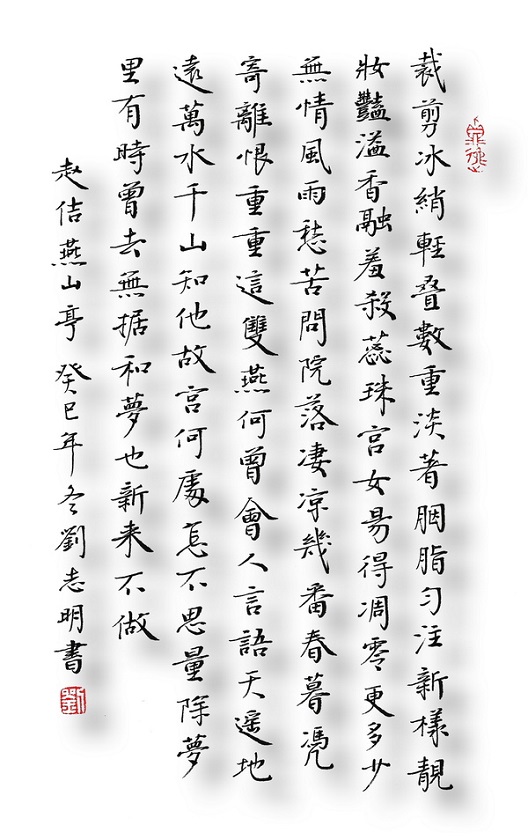 裁剪冰綃輕叠數重淡著胭脂匀注新樣靚
妝豔溢香融羞殺蕊珠宮女易得凋零更多少
無情風雨愁苦問院落凄凉幾番春暮憑
寄離恨重重這雙燕何曾會人言語天遥地
遠萬水千山知他故宮何處怎不思量除夢
里有時曾去無据和夢也新来不做
赵佶燕山亭 癸巳年冬劉志明書
劉